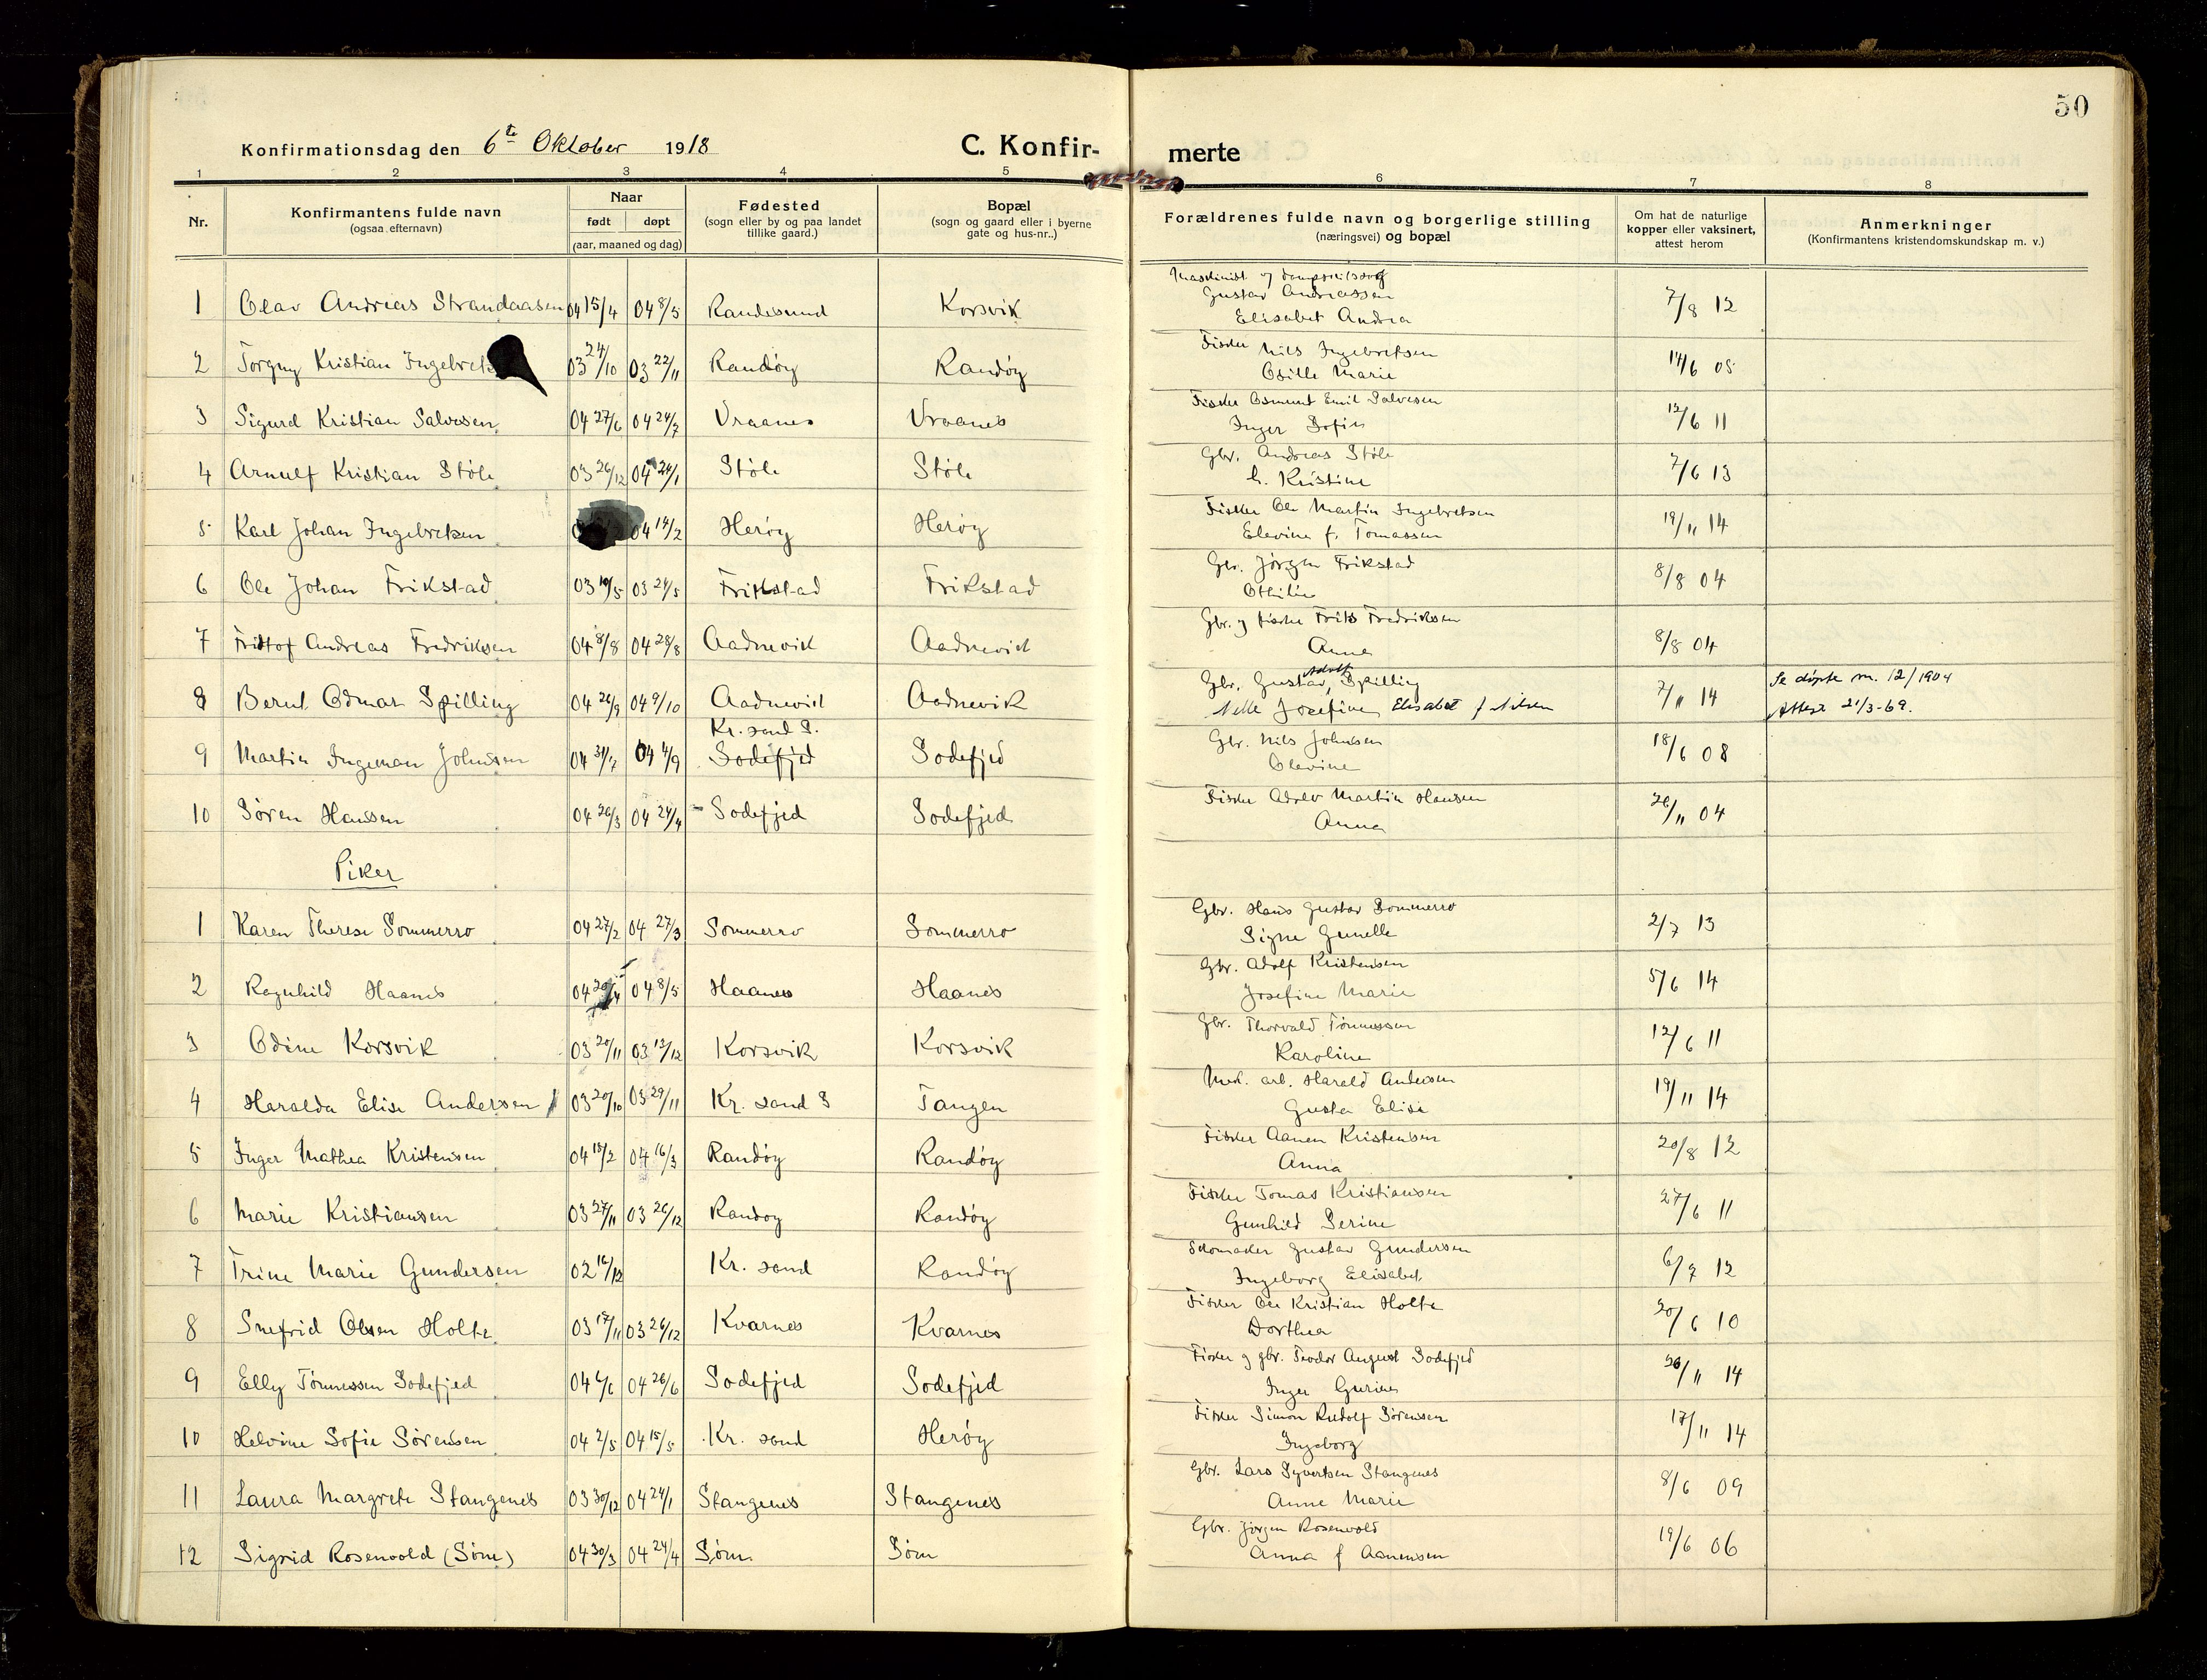 50
Konfirmationsdag den 6te Oktober 1918
C. Konfir- merte
1 2 3 4 5 6 7 8
Nr.
Konfirmantens fulde navn
(ogsaa efternavn)
Naar
født døpt
(aar, maaned og dag)
Fødested
(sogn eller by og paa landet
tillike gaard.)
Bopæl
(sogn og gaard eller i byerne
gate og hus-nr..)
Forældrenes fulde navn og borgerlige stilling
(næringsvei) og bopæl
Om hat de naturlige
kopper eller vaksinert,
attest herom
Anmerkninger
(Konfirmantens kristendomskundskap m. v.)
Maskinist og
1 Olav Andreas Strandaasen 04 15/4 04 8/5 Randesund Korsvik Gustav Andreassen 7/8 12
Elisabet Andrea
2 Torgny Kristian 03 24/10 03 22/11 Randøy Randøy Fisker Nils Ingebretsen 14/6 05
Osille Marie
3 Sigurd Kristian Salvesen 04 27/6 04 24/7 Vraanes Vraanes Fisker Osmunt Emil Salvesen 12/6 11
Inger Sofie
4 Arnulf Kristian Støle 03 26/12 04 24/1 Støle Støle Gbr. Andreas Støle 7/6 13
Kristine
5 Karl Johan Ingebretsen 04 14/2 Herøy Herøy Fisker Ole Martin Ingebretsen 19/11 14
Elevine f. Tomassen
6 Ole Johan Frikstad 03 10/5 03 24/5 Frikstad Frikstad Gbr. Jørgen Frikstad 8/8 04
Othilie
7 Fridtof Andreas Fredriksen 04 8/8 04 28/8 Aadnevik Aadnevik Gbr. og fisker Frits Fredriksen 8/8 04
Anna
8 Bernt Odmar Spilling 04 26/9 04 9/10 Aadnevik Aadnevik Gbr. Gustav Adolf Spilling 7/11 14 Se døpte nr. 12/1904
Nelle Josefine Elisabet f Nilsen Attest 21/3-69.
Kr. sand S.
9 Martin Ingeman Johnsen 04 31/7 04 4/9 Sodefjed Sodefjed Gbr. Nils Johnsen 18/6 08
Olevine
10 Søren Hansen 04 26/3 04 24/4 Sodefjed Sodefjed Fisker Adolv Martin Hansen 26/11 04
Anna
Piker
1 Karen Therese Sommerro 04 27/2 04 27/3 Sommerro Sommerro Gbr. Hans Gustav Sommerro 2/7 13
Signe Gunelle
2 Ragnhild Haanes 04 20/4 04 8/5 Haanes Haanes Gbr. Adolf Kristensen 5/6 14
Josefine Marie
3 Odine Korsvik 03 20/11 03 13/12 Korsvik Korsvik Gbr. Thorvald Tønnessen 12/6 11
Karoline
4 Haralda Elise Andersen 03 20/10 03 29/11 Kr. sand S Tangen arb. Harald Andersen 19/11 14
Gusta Elise
5 Inger Mathea Kristensen 04 15/2 04 16/3 Randøy Randøy Fisker Aanen Kristensen 20/8 12
Anna
6 Marie Kristiansen 03 27/11 03 26/12 Randøy Randøy Fisker Tomas Kristiansen 27/6 11
Gunhild Serine
7 Trine Marie Gundersen 02 16/12 Kr. sand Randøy Skomaker Gustav Gundersen 6/7 12
Ingeborg Elisabet
8 Snefrid Olsen Holte 03 17/11 03 26/12 Kvarnes Kvarnes Fisker Ole Kristian Holte 20/6 10
Dorthea
9 Elly Tønnessen Sodefjed 04 6/6 04 26/6 Sodefjed Sodefjed Fisker og gbr. Teodor August Sodefjed 26/11 14
Inger Gurine
10 Helvine Sofie Sørensen 04 2/5 04 15/5 Kr. sand Herøy Fisker Simon Rudolf Sørensen 17/11 14
Ingeborg
11 Laura Margrete Stangenes 03 30/12 04 24/1 Stangenes Stangenes Gbr. Lars Syvertsen Stangenes 8/6 09
Anne Marie
12 Sigrid Rosenvold (Søm) 04 30/3 04 24/4 Søm Søm Gbr. Jørgen Rosenvold 19/6 06
Anna f Aanensen